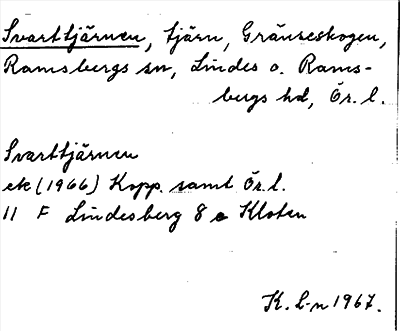 Svarttjärnen, tjärn, Gränseskogen,
Ramsbergs sn, Lindes o. Rams-
bergs hd, Ör. l.
Svarttjärnen
ek (1966) Kopp. samt Ör. l.
11 F Lindesberg 8 e Kloten
K. L-n 1967.